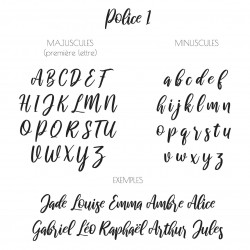 Police 1
MAJUSCULES
(première lettre)
A B C D E F G
H I J K L M N
O P Q R S T U
V W X Y Z
MINUSCULES
a b c d e f g
h i j k l m n
o p q r s t u
v w x y z
EXEMPLES
Jade Louise Emma Ambre Alice
Gabriel Léo Raphaël Arthur Jules